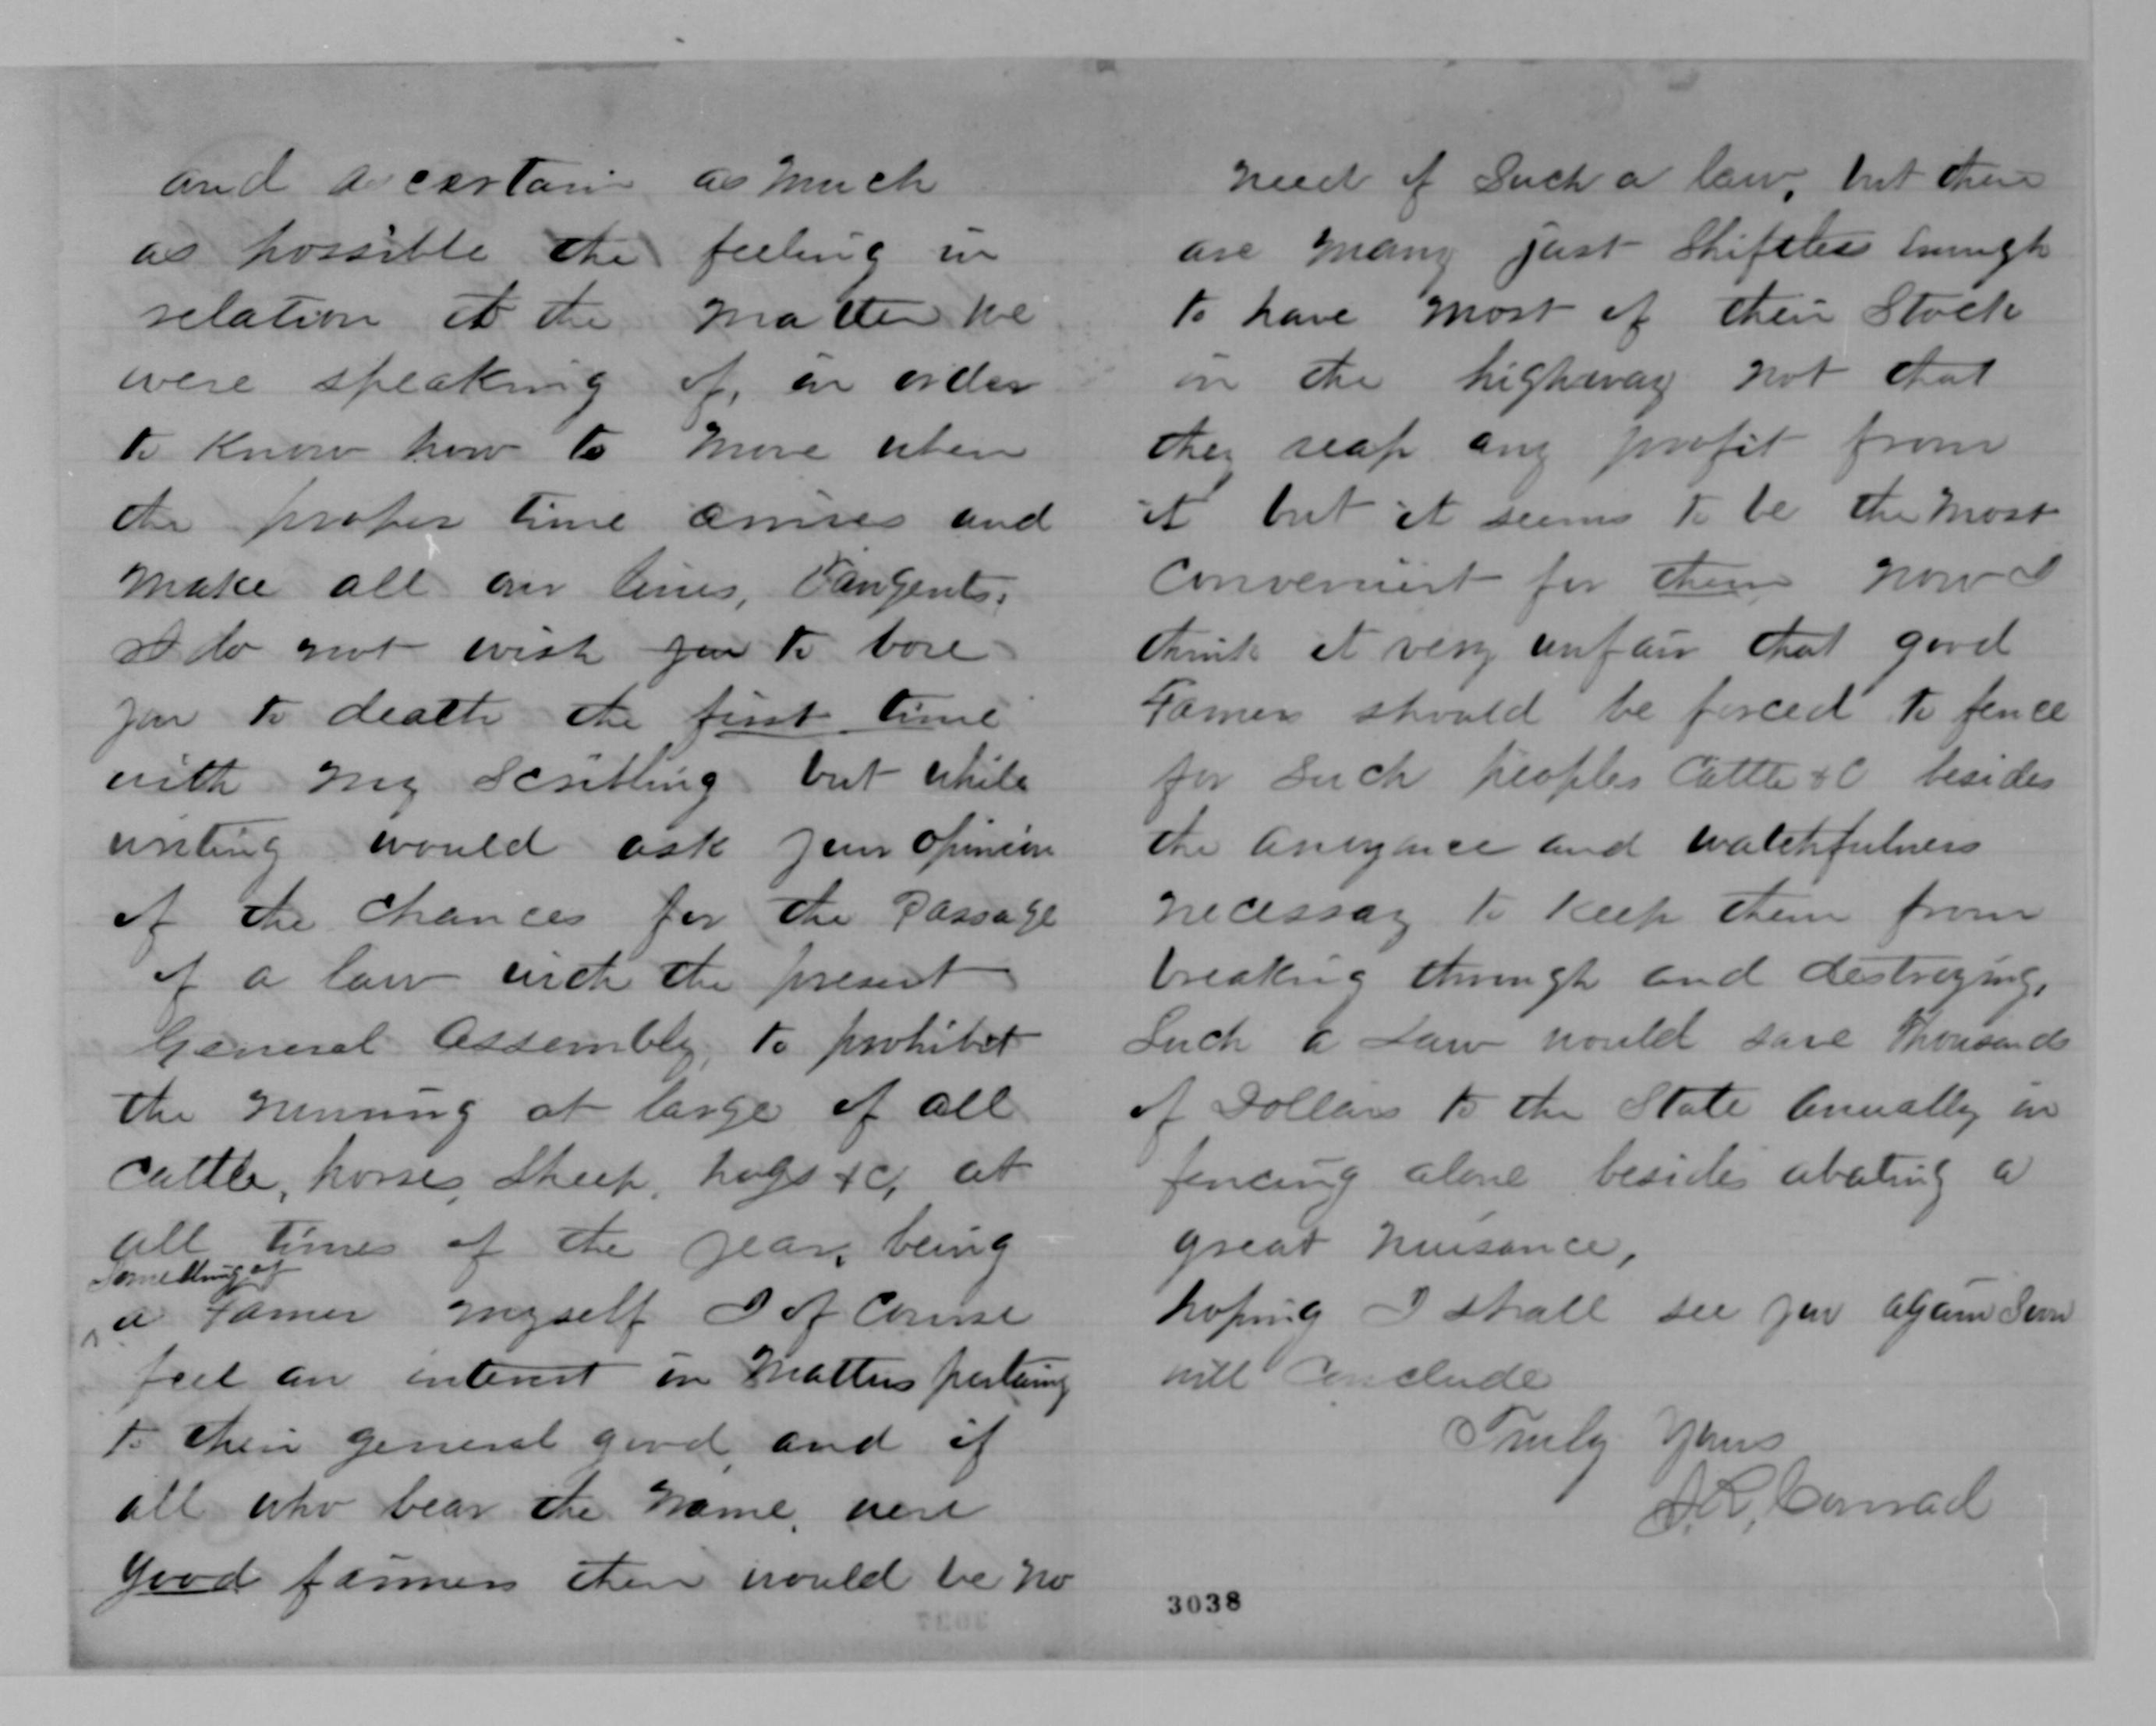 and ascertain as much
as possible the feeling in
relation to the matter we
were speaking of, in order
to Know how to move when
the proper time arrives and
make all our lines, tangents.
I do not wish you to bore
you to death the first time
with my Scribling but while
writing would ask your opinion
of the chances for the Passage
of a law with the present
General Assembly, to prohibit
the running at large of all
Cattle, horses, Sheep, hogs &c, at
all times of the year, being
Something of
a Farmer myself I of Course
feel an interest in Matters pertaining
to their general good, and if
all who bear the name, were
good farmers there would be no
need of Such a law, but there
are many just Shiftless enough
to have most of their Stock
in the highway not that
they reap any profit from
it but it seems to be the most
Convenient for them now I
think it very unfair that good
Farmers should be forced to fence
for Such peoples Cattle &C besides
the anoyance and watchfulness
necessary to keep them from
breaking through and destroying,
Such a Law would save Thousands
of Dollars to the State Anually in
fencing alone besides abating a
great nuisance,
hoping I shall see you again Soon
will Conclude
Truly Yours
J.R. Conrad
3038